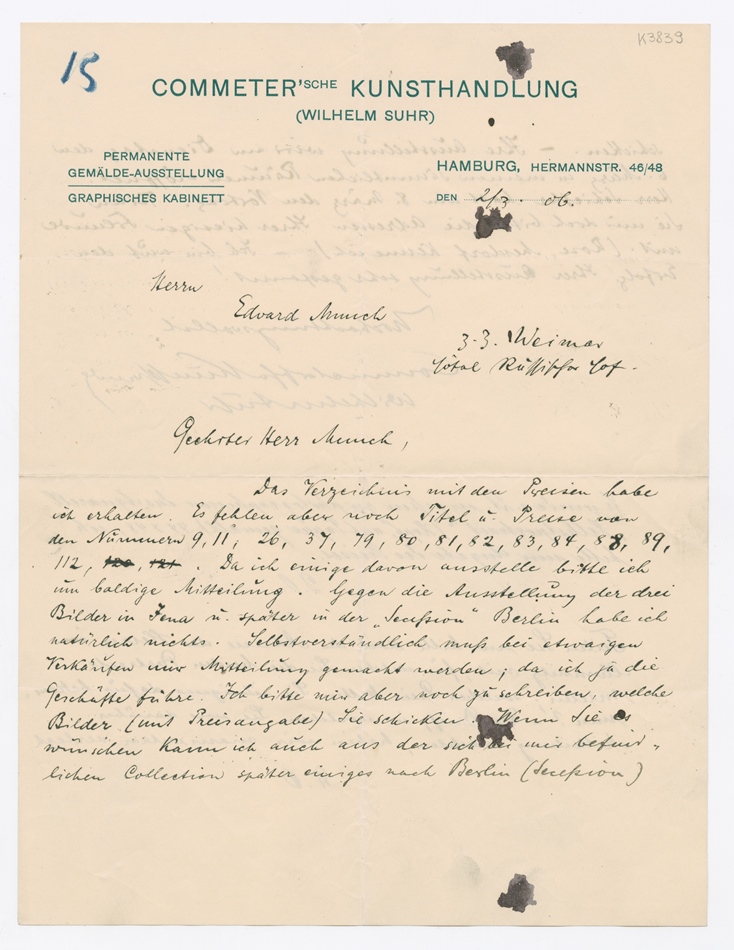 K3839
15
COMMETER'SCHE KUNSTHANDLUNG
(WILHELM SUHR)
PERMANENTE
GEMÄLDE-AUSSTELLUNG
GRAPHISCHES KABINETT
HAMBURG, HERMANNSTR. 46/48
DEN 2/3. 06.
Herrn
Edvard Munch
z. Z. Weimar
Hôtel Russischer Hof.
Geehrter Herr Munch,
Das Verzeichnis mit den Preisen habe
ich erhalten. Es fehlen aber noch Titel u. Preise von
den Nummern 9, 11, 26, 37, 79, 80, 81, 82, 83, 84, 88, 89,
112, 120, 121. Da ich einige davon ausstelle bitte ich
um baldige Mitteilung. Gegen die Ausstellung der drei
Bilder in Jena u. später in der „Secession" Berlin habe ich
natürlich nichts. Selbstverständlich muß bei etwaigen
Verkäufen mir Mitteilung gemacht werden; da ich ja die
Geschäfte führe. Ich bitte mir aber noch zu schreiben, welche
Bilder (mit Preisangabe) Sie schicken. Wenn Sie es
wünschen kann ich auch aus der sich bei mir befind-
lichen Collection später einiges nach Berlin (Secession)